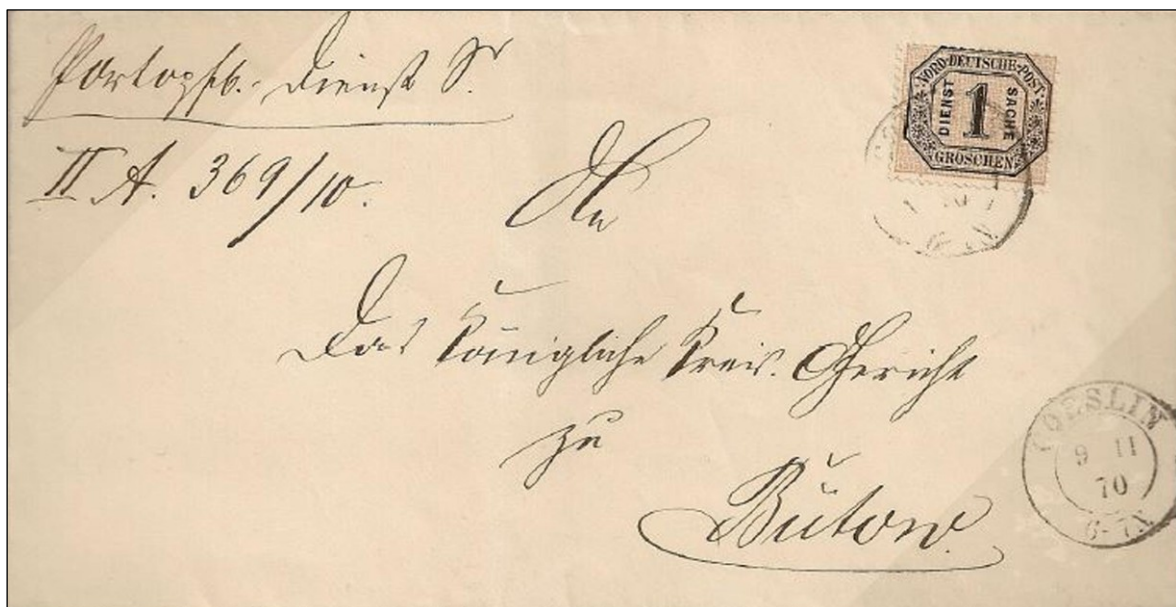 Portopfl. Dienst S.
II A. 369/10.
NORD-DEUTSCHE-POST
DIENST 1 SACHE
GROSCHEN
An
Das Königliche Kreis-Gericht
zu
Bütow
COESLIN
9 11
70
6-7N